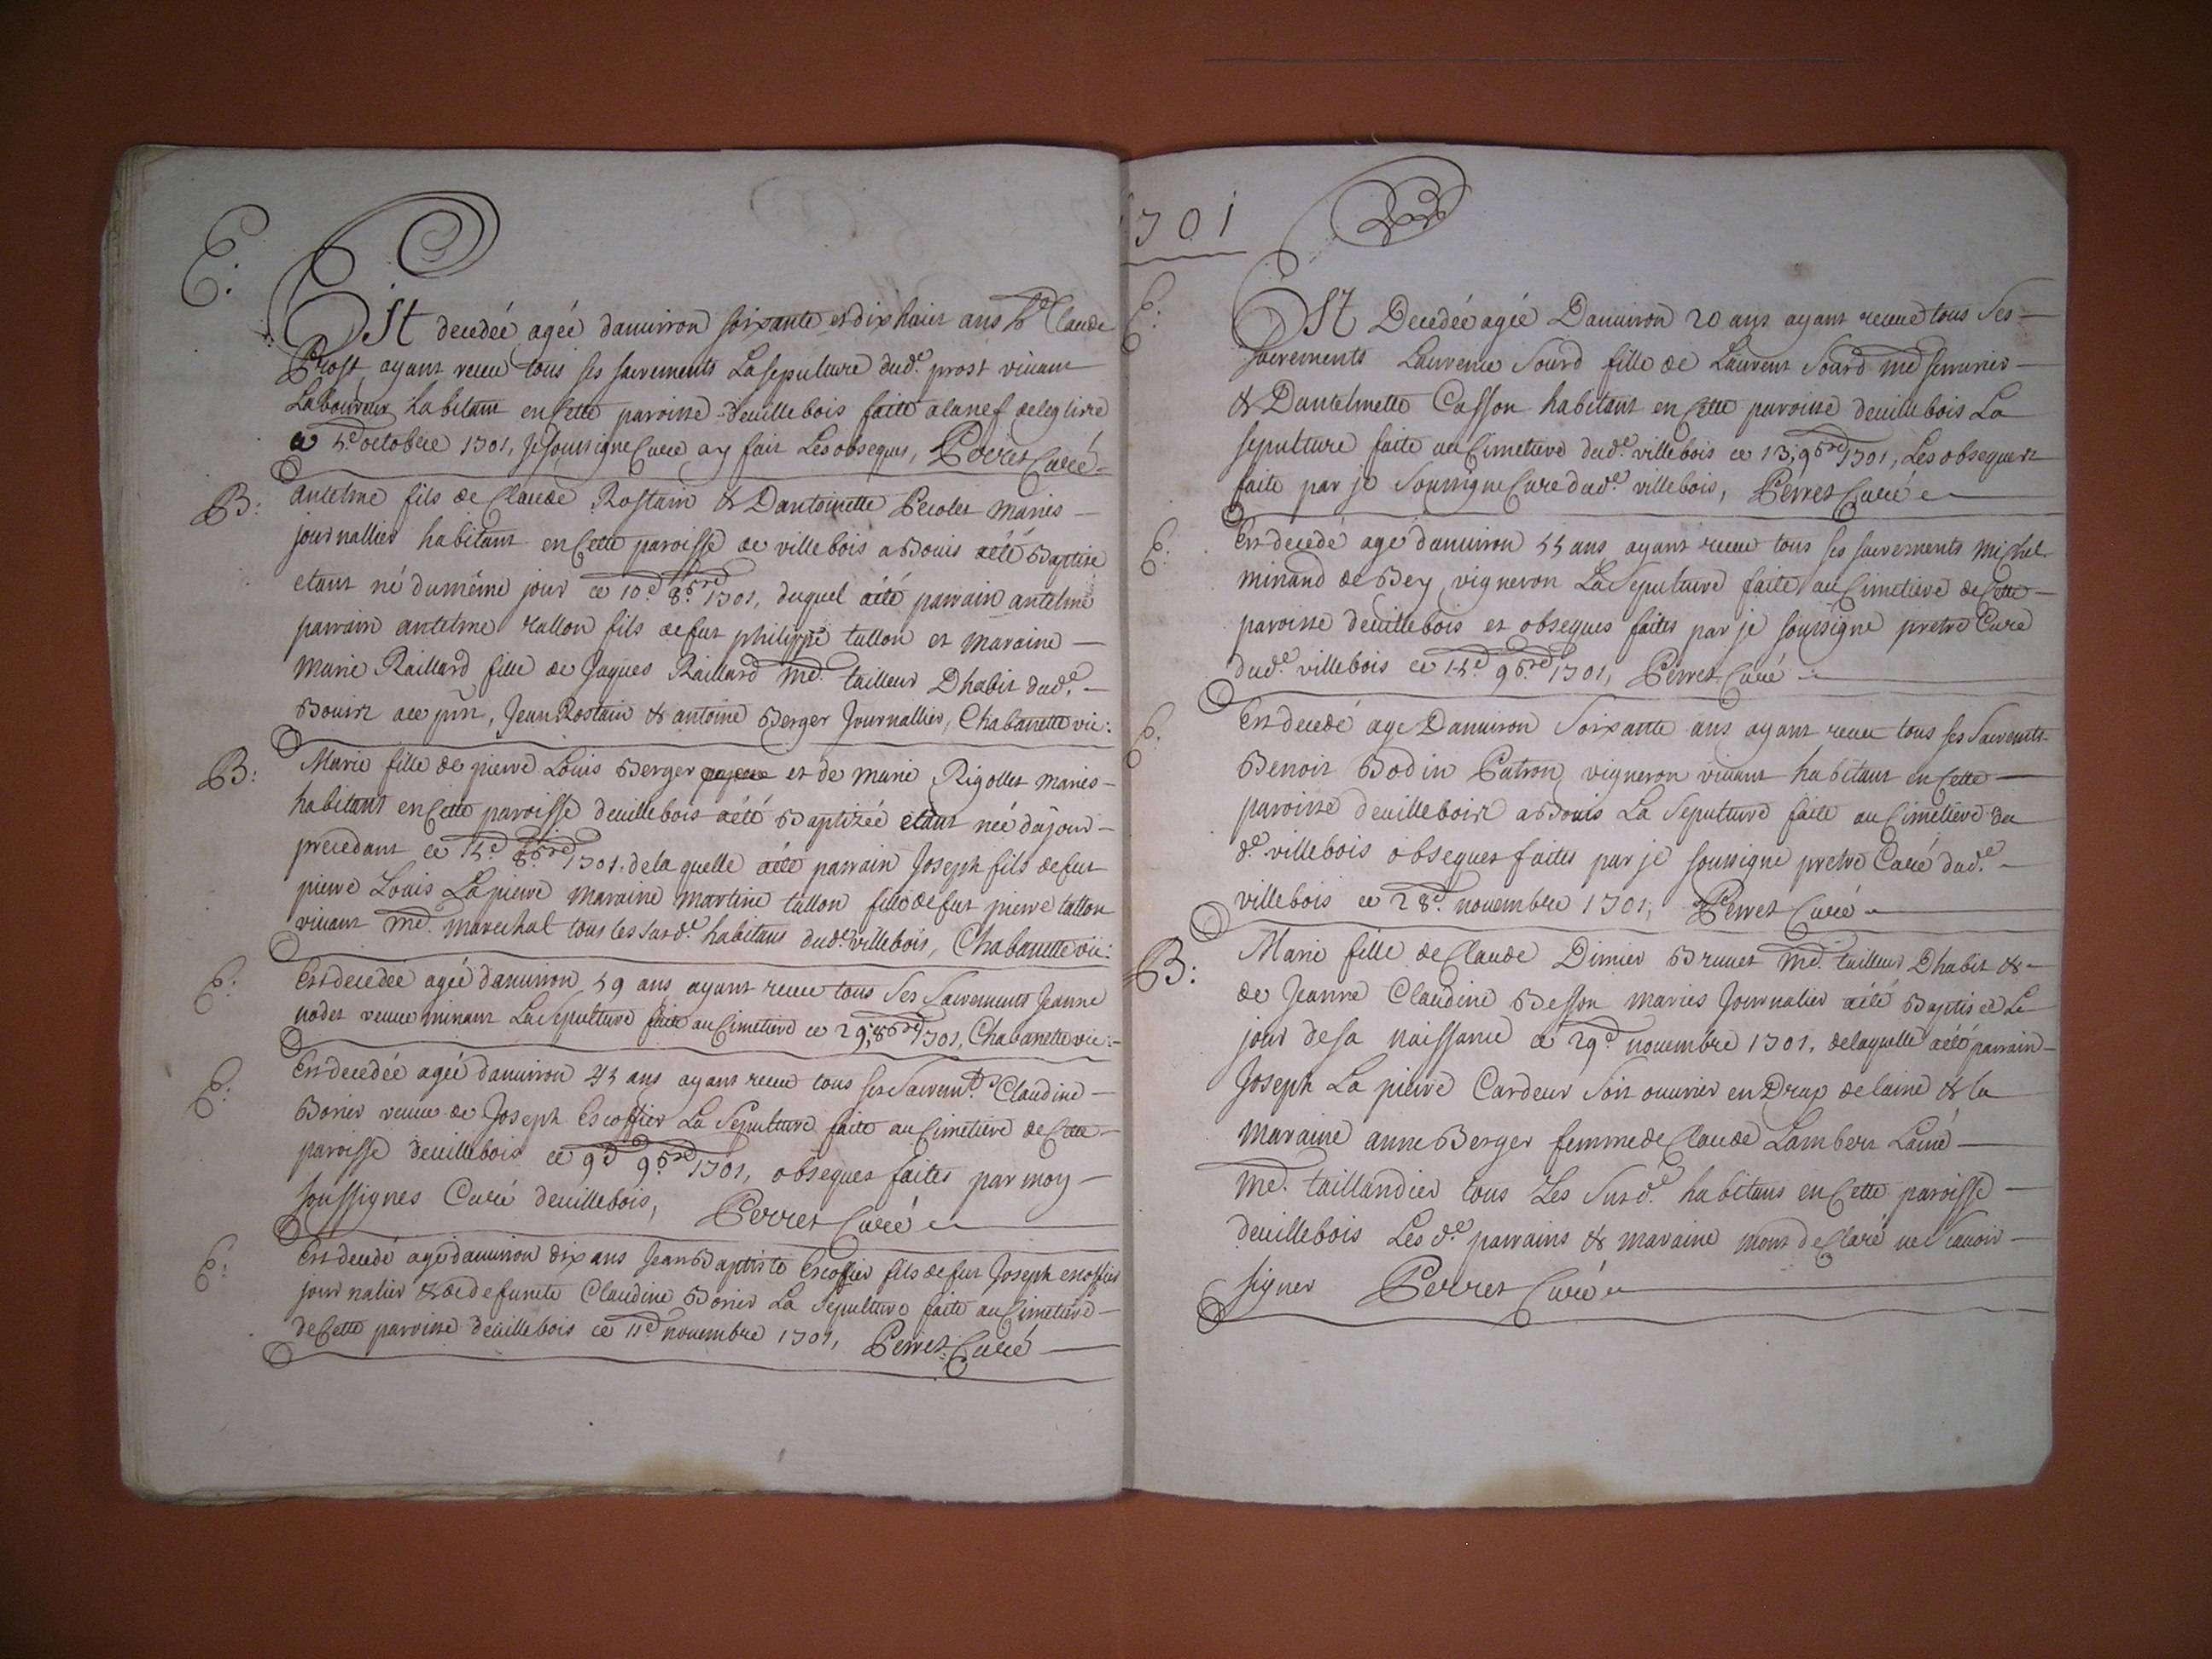 E.
Est decedée agée danuiron soixante et dix huict ans h.e Claude
Prost, ayant receu tous ses sacrements La sepulture dud.e prost viuant
Laboureur habitant en Cette paroisse deuillebois faite alanef deleglise
ce 5.e octobre 1701, Je soussigne Curé ay fait Les obseques, Perret Curé
B: antelme fils de Claude Rostain & Dantoinette Pecolet Mariés
journallier habitant en Cette paroisse de villebois a Bouis aété Baptise
etant né du même jour ce 10.e 8.bre 1701, duquel aété parrain antelme
parrain antelme tallon fils defut philippe tallon et maraine
Marie Raillard fille de Jaques Raillard m.e tailleur Dhabit dud.e
Bouis ace pnt, Jean Rostain & antoine Berger Journallier, Chabanette vic:
B: Marie fille de pierre Louis Berger et de Marie Rigollet Mariés
habitant en Cette paroisse deuillebois aété Baptizée étant née dujour
precedant ce 15.e 8.bre 1701. de la quelle aété parrain Joseph fils defut
pierre Louis Lapierre maraine martine tallon fille defut pierre tallon
viuant m.e marechal tous les susd.e habitans dud.e villebois, Chabanette vic:
E: Est decedée agée danuiron 59 ans ayant receu tous ses Sacrements Jeanne
nodet veuue minant La Sepulture faite au Cimetiere ce 29, 8.bre 1701, Chabanette vic:
E: Est decedée agée danuiron 45 ans ayant receu tous ses Sacrem.ts Claudine
Borier veuue de Joseph Escoffier La Sepulture faite au Cimetiere de Cette
paroisse deuillebois ce 9.e 9.bre 1701, obseques faites par moy
soussignes Curé deuillebois, Perret Curé
E: Est decedé agé danuiron dix ans Jean Baptiste Escoffier fils defut Joseph escoffier
journalier & de defunte Claudine Borier La Sepulture faite au Cimetiere
de Cette paroisse deuillebois ce 11.e nouembre 1701, Perret Curé
1701
E: Est Decedée agée Danuiron 20 ans ayant receue tous Ses
sacrements Laurence Sourd fille de Laurent Sourd m.e serrurier
& Dantelmette Casson habitant en Cette paroisse deuillebois La
sepulture faite au Cimetiere dud.e villebois ce 13, 9.bre 1701, Les obseques
faite par je Soussigne Cure dud.e villebois, Perret Curé
E: Est decedé agé danuiron 55 ans ayant receu tous ses sacrements Michel
minand de Bey, vigneron La Sepulture faite au Cimetiere de Cette
paroisse deuillebois et obseques faites par je soussigne pretre Curé
dud.e villebois ce 15.e 9.bre 1701, Perret Curé
E. Est decedé age Danuiron Soixante ans ayant receu tous ses Sacremts
Benoit Bodin Patron vigneron viuant habitant en Cette
paroisse deuillebois a Bouis La Sepulture faite au Cimetiere du
d.e villebois obseques faites par je soussigne pretre Curé dud.e
villebois ce 28.e nouembre 1701, Perret Curé
B: Marie fille de Claude Dimier Brunet m.e tailleur Dhabit &
de Jeanne Claudine Besson mariés Journalier aété Baptisée Le
jour de sa naissance ce 29.e nouembre 1701, delaquelle aété parrain
Joseph La pierre Cardeur soit ouurier en Drap de laine & la
Maraine anne Berger femme de Claude Lambert Lainé
m.e taillandier tous Les Susd.e habitans en Cette paroisse
deuillebois Les d.e parrains & maraine mont declaré ne scauoir
signer Perret Curé